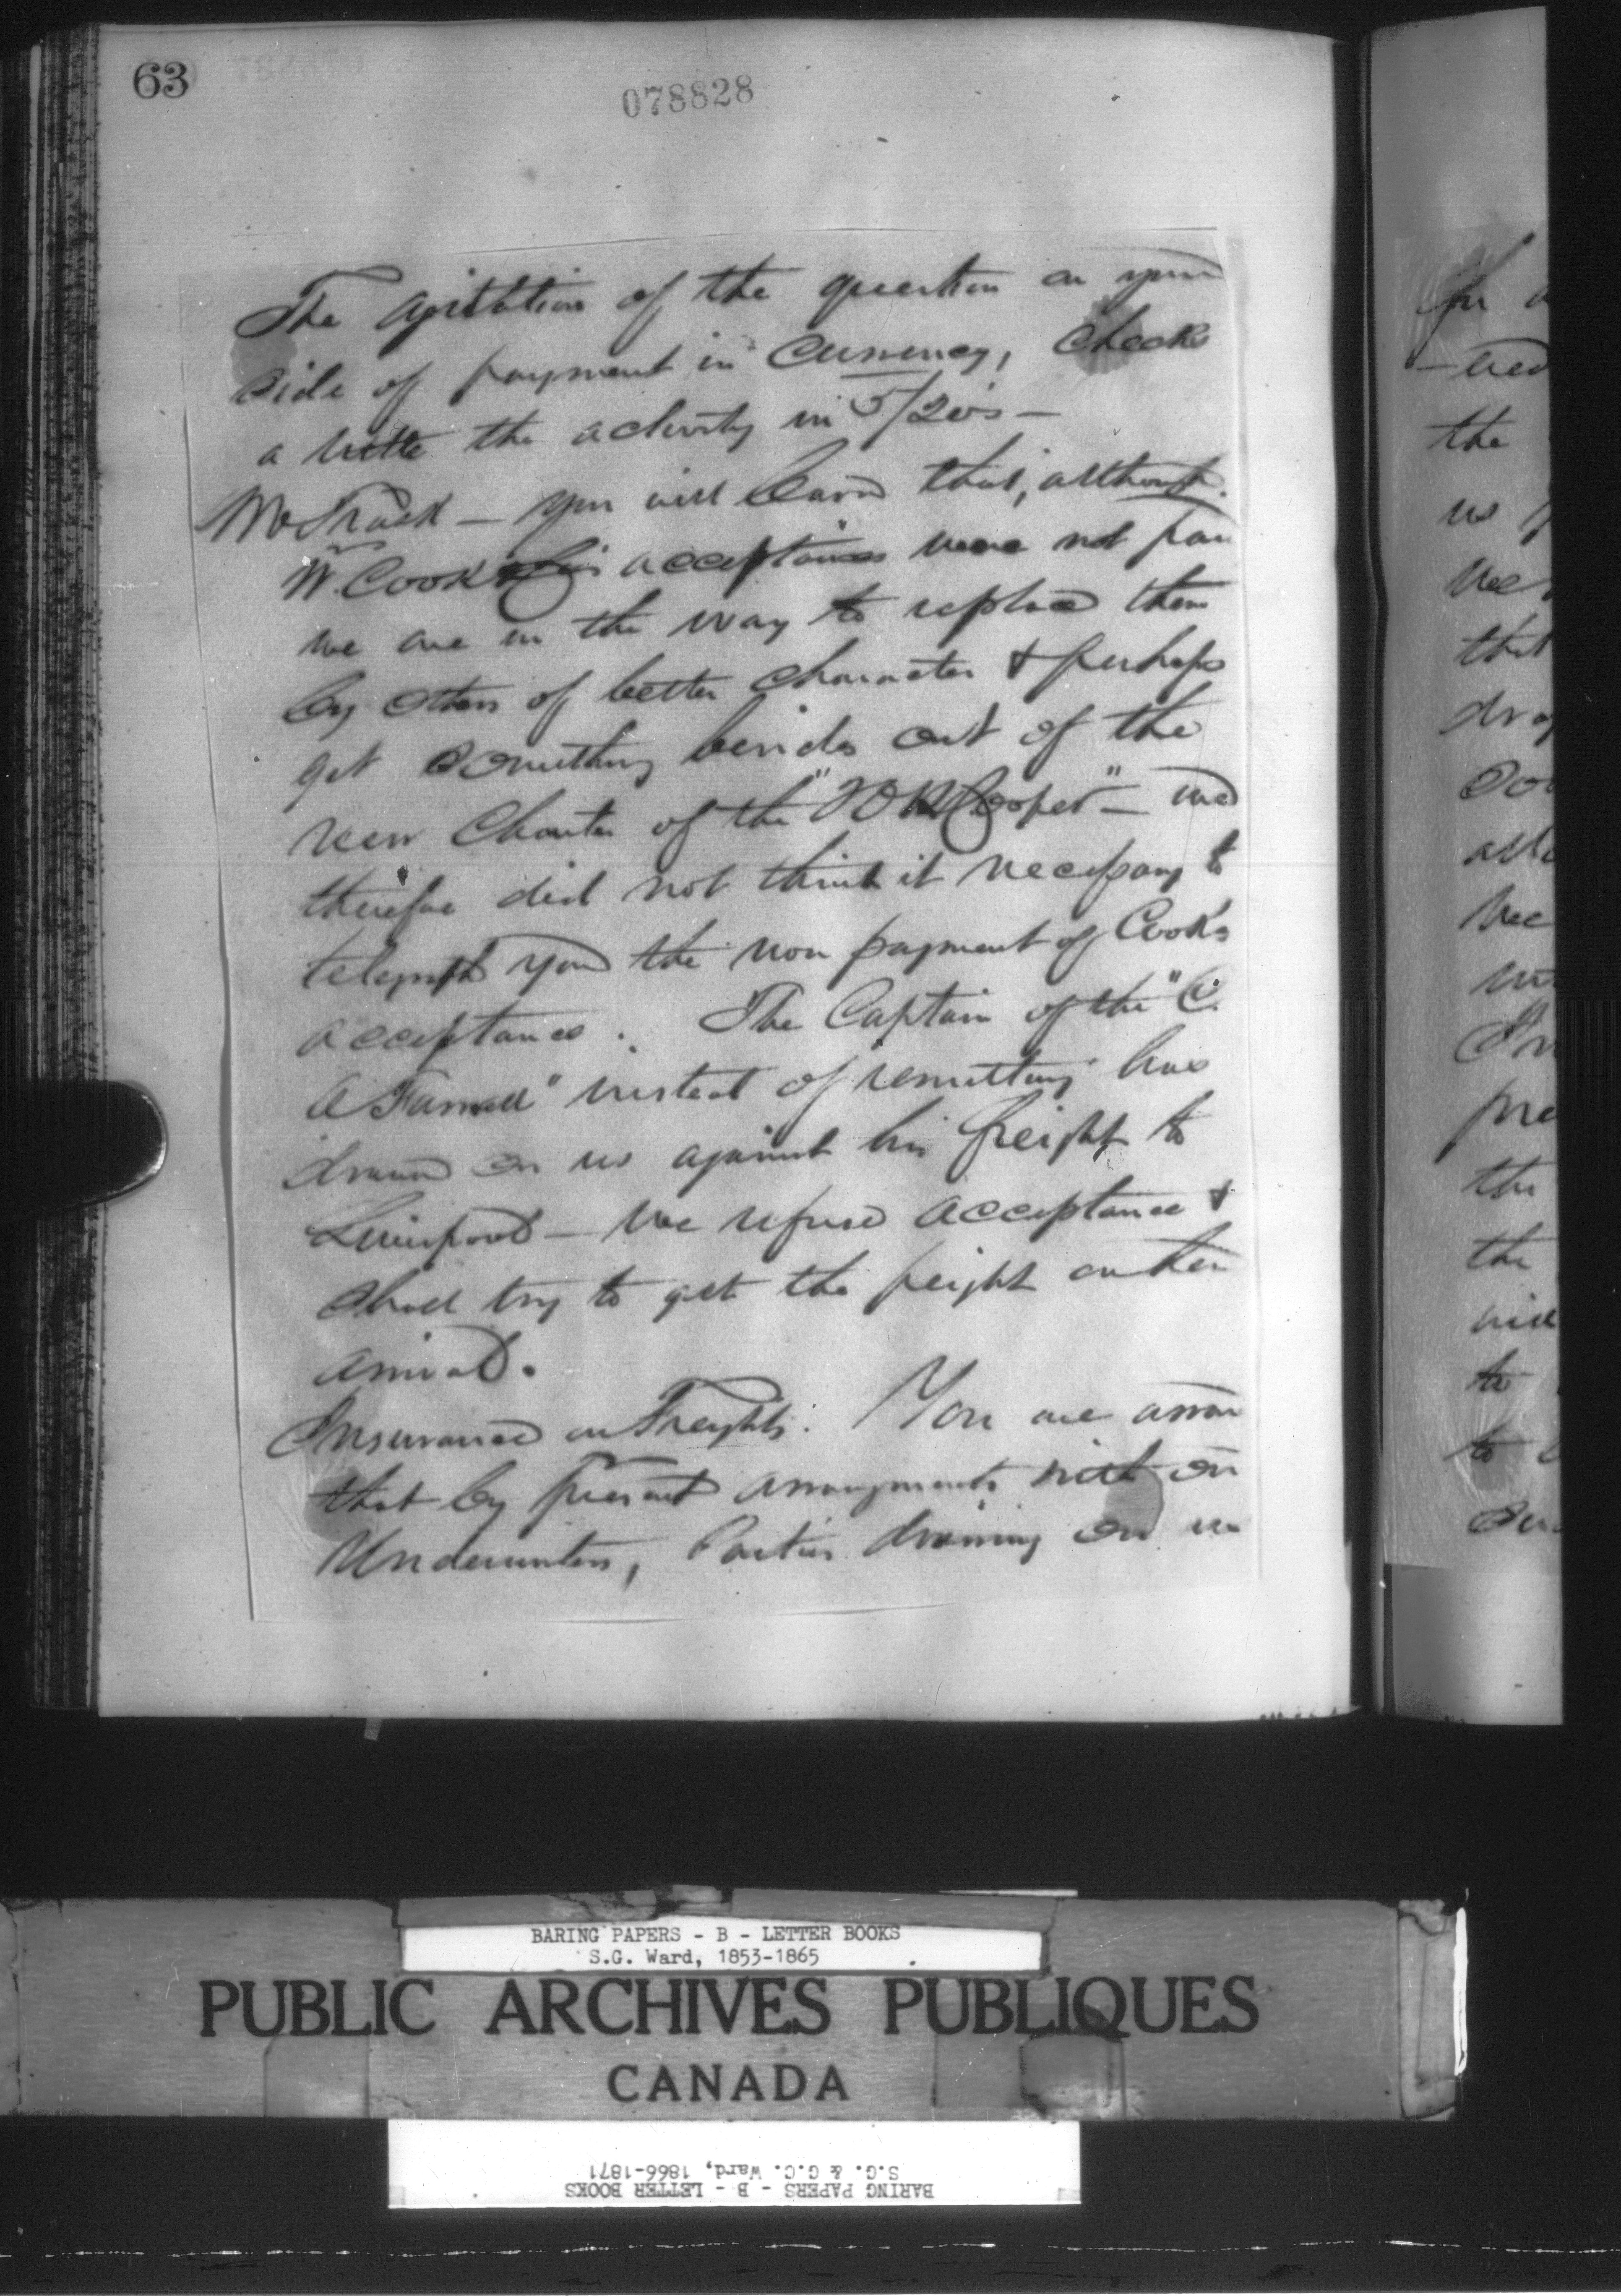 63
078828
The agitation of the question on your
side of payment in currency, checks
a little the activity in 5/20's —
you will learn that, although
W. Cook acceptances were not
we are in the way to replace them
by others of better character & perhaps
get something besides out of the
new Charter of the Cooper" —
therefore did not think it necessary to
telegraph you the non payment of Cook's
acceptance. The Captain of the "C.
A Farwell" instead of remitting has
drawn on us against his freight to
Liverpool — We refuse acceptance &
shall try to get the freight on her
arrival.
Insurance on Freights. You are
that by present arrangements with our
Underwriters, Parties drawing on us
the
BARING PAPERS - B - LETTER BOOKS
S.G. Ward, 1853-1865
PUBLIC ARCHIVES PUBLIQUES
CANADA
BARING PAPERS - B - LETTER BOOKS
S.G. & G.C. Ward, 1866-1871